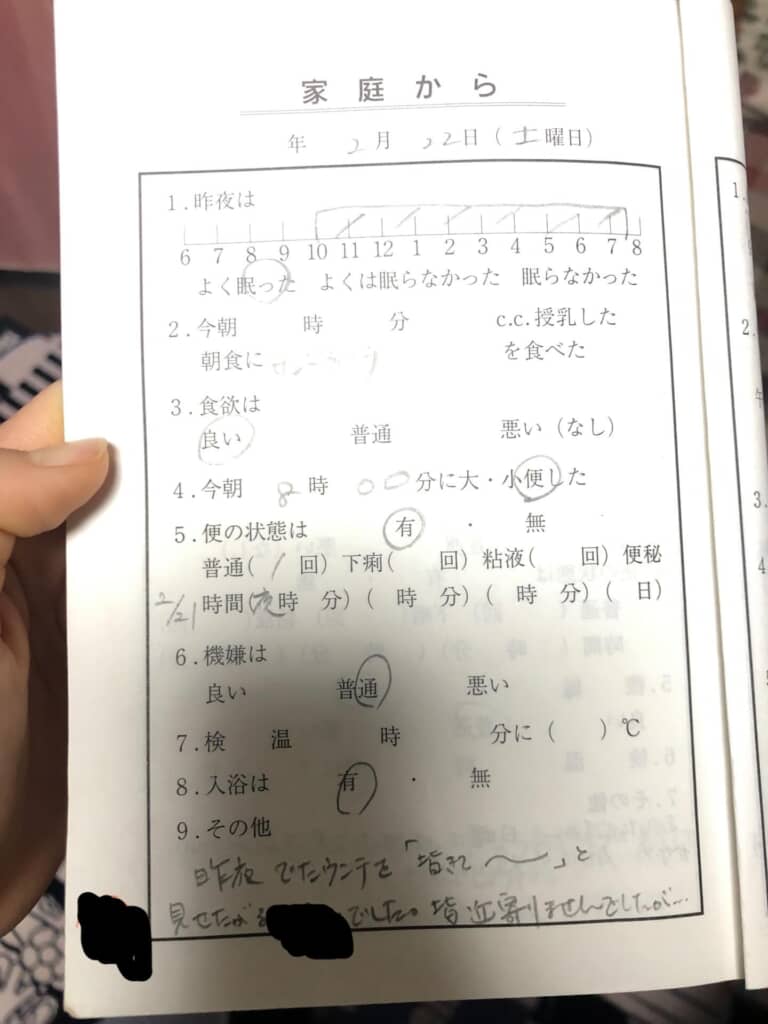 家庭から
年 2月 22日(土曜日)
1.昨夜は
6 7 8 9 10 11 12 1 2 3 4 5 6 7 8
よく眠った よくは眠らなかった 眠らなかった
2.今朝 時 分 c.c.授乳した
朝食に を食べた
3.食欲は
良い 普通 悪い(なし)
4.今朝 8時 00分に大・小便した
5.便の状態は 有・無
普通(1回)下痢( 回)粘液( 回)便秘
2/21 時間(夜時 分)( 時 分)( 時 分)( 日)
6.機嫌は
良い 普通 悪い
7.検温 時 分に( )℃
8.入浴は 有・無
9.その他
昨夜 でたウンチを「皆きて〜」と
見せたが でした。皆近寄りませんでしたが…
1.
2.
3.
4